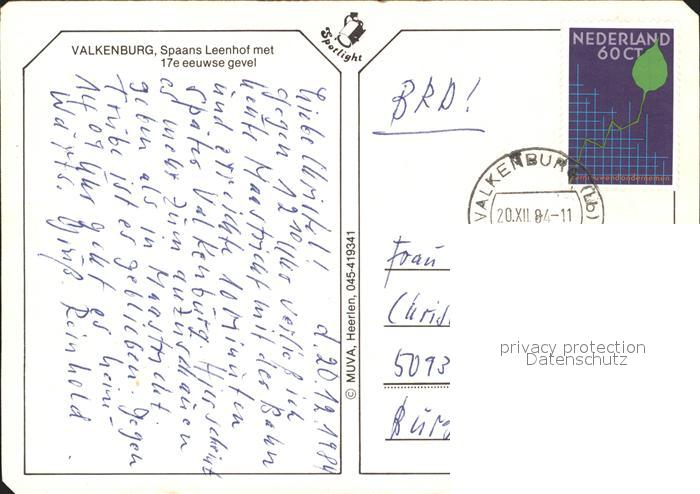 VALKENBURG, Spaans Leenhof met
17e eeuwse gevel
Spotlight
d. 20.12.1984
Liebe Christel!
Gegen 12 10 Uhr verließ ich
heute Maastricht mit der Bahn
und erreichte 10 Minuten
später Valkenburg. Hier scheint
es mehr zum anzuschauen
geben als in Maastricht.
Trübe ist es geblieben. Gegen
14 09 Uhr geht es heim-
wärts. Gruß Reinhold.
© MUVA, Heerlen, 045-419341
BRD!
NEDERLAND
60 CT
VALKENBURG (Lb)
20.XII 84-11
Frau
Chris
5093
Burg
privacy protection
Datenschutz